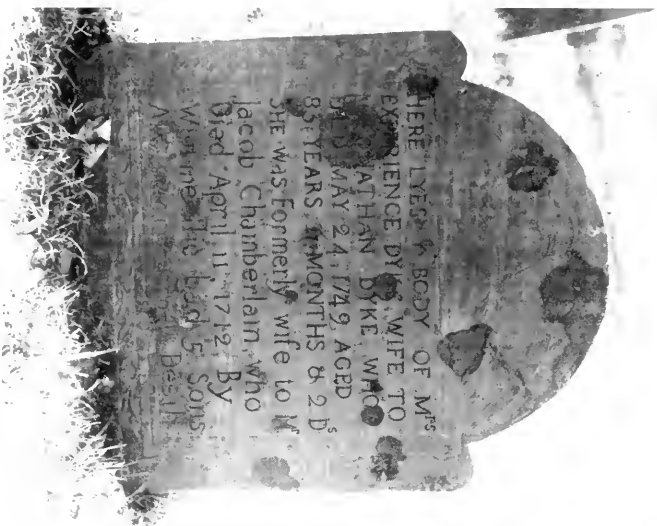 HERE LYES Yᵉ BODY OF Mʳˢ
EXPERIENCE DYKE WIFE TO
NATHAN DYKE WHO
MAY 24, 1749 AGED
YEARS MONTHS & 2 Dˢ
SHE was Formerly wife to Mʳ
Jacob Chamberlain who
Died April 11 1712 By
had 5 Sons